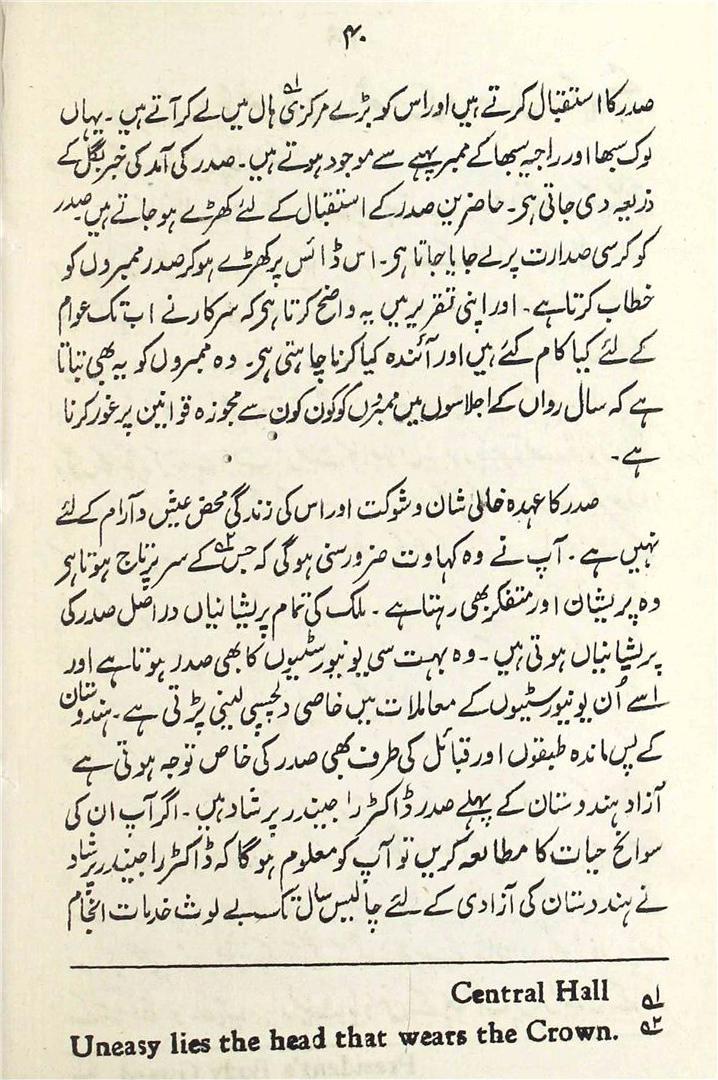 ۴۰
صدر کا استقبال کرتے ہیں اور اس کو بڑے مرکزی ۱؎ ہال میں لے کر آتے ہیں۔ یہاں
لوک سبھا اور راجیہ سبھا کے ممبر پہلے سے موجود ہوتے ہیں۔ صدر کی آمد کی خبر بگل کے
ذریعہ دی جاتی ہی۔ حاضرین صدر کے استقبال کے لئے کھڑے ہو جاتے ہیں صدر
کو کرسی صدارت پر لے جایا جاتا ہی۔ اس ڈائس پر کھڑے ہو کر صدر ممبروں کو
خطاب کرتا ہے۔ اور اپنی تقریر میں یہ واضح کرتا ہی کہ سرکار نے اب تک عوام
کے لئے کیا کام کئے ہیں اور آئندہ کیا کرنا چاہتی ہی۔ وہ ممبروں کو یہ بھی بتاتا
ہے کہ سال رواں کے اجلاسوں میں ممبروں کو کون کون سے مجوزہ قوانین پر غور کرنا
ہے۔
صدر کا عہدہ خالی شان و شوکت اور اس کی زندگی محض عیش و آرام کے لئے
نہیں ہے۔ آپ نے وہ کہاوت ضرور سنی ہوگی کہ جس ۲؎ کے سر پر تاج ہوتا ہی
وہ پریشان اور متفکر بھی رہتا ہے۔ ملک کی تمام پریشانیاں دراصل صدر کی
پریشانیاں ہوتی ہیں۔ وہ بہت سی یونیورسٹیوں کا بھی صدر ہوتا ہے اور
اسے اُن یونیورسٹیوں کے معاملات میں خاصی دلچسپی لینی پڑتی ہے۔ ہندوستان
کے پس ماندہ طبقوں اور قبائل کی طرف بھی صدر کی خاص توجہ ہوتی ہے
آزاد ہندوستان کے پہلے صدر ڈاکٹر راجیندر پرشاد ہیں۔ اگر آپ ان کی
سوانح حیات کا مطالعہ کریں تو آپ کو معلوم ہوگا کہ ڈاکٹر راجیندر پرشاد
نے ہندوستان کی آزادی کے لئے چالیس سال تک بے لوث خدمات انجام
۱؎ Central Hall
۲؎ Uneasy lies the head that wears the Crown.